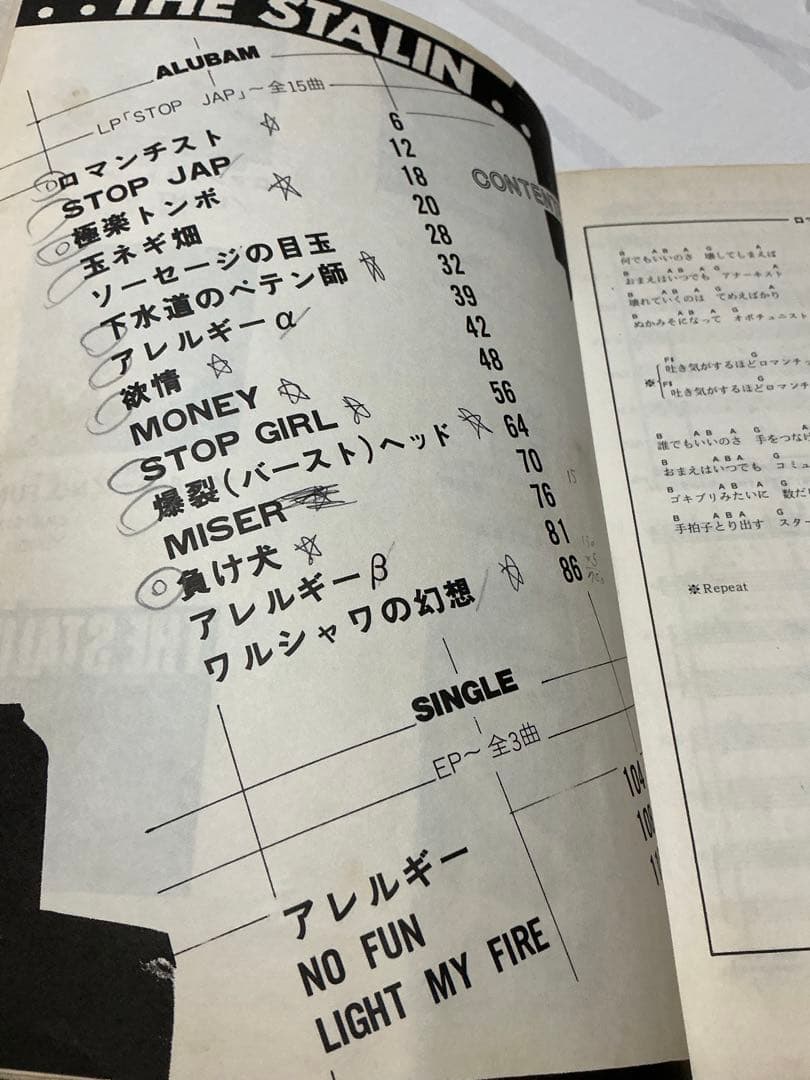 THE STALIN
ALUBAM
LP「STOP JAP」〜全15曲
ロマンチスト 6
STOP JAP 12
極楽トンボ 18
玉ネギ畑 20
ソーセージの目玉 28
下水道のペテン師 32
アレルギーα 39
欲情 42
MONEY 48
STOP GIRL 56
爆裂(バースト)ヘッド 64
MISER 70
負け犬 76
アレルギーβ 81
ワルシャワの幻想 86
15
SINGLE
EP〜全3曲
アレルギー 104
NO FUN
LIGHT MY FIRE
CONTENT
B A B A G A
何でもいいのさ 壊してしまえば
B A B A G A
おまえはいつでも アナーキスト
B A B A G
壊れていくのは てめえばかり
B A B A G
ぬかみそになって オポチュニスト
F# G
※ 吐き気がするほどロマンチッ
F# G
吐き気がするほどロマンチッ
B A B A G
誰でもいいのさ 手をつなげ
B A B A G
おまえはいつでも コミュ
B A B A G
ゴキブリみたいに 数だけ
B A B A G
手拍子とり出す スター
※Repeat